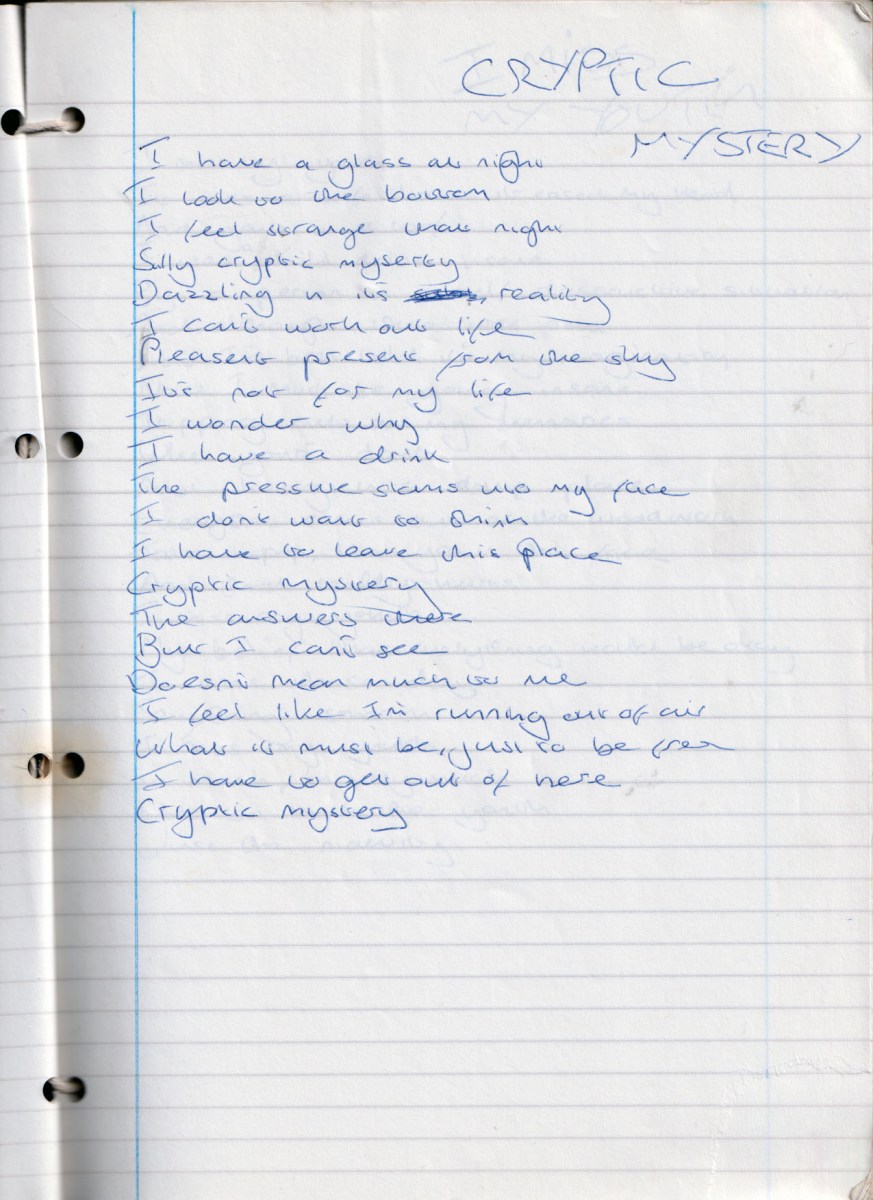 CRYPTIC
MYSTERY
I have a glass at night
I look to the bottom
I feel strange that night
Silly cryptic myserty
Dazzling in its reality
I can't work out life
Pleasent present from the sky
It's not for my life
I wonder why
I have a drink
The pressure slams into my face
I don't want to think
I have to leave this place
Cryptic mystery
The answers there
But I can't see
Doesn't mean much to me
I feel like I'm running out of air
What it must be, just to be free
I have to get out of here
Cryptic mystery